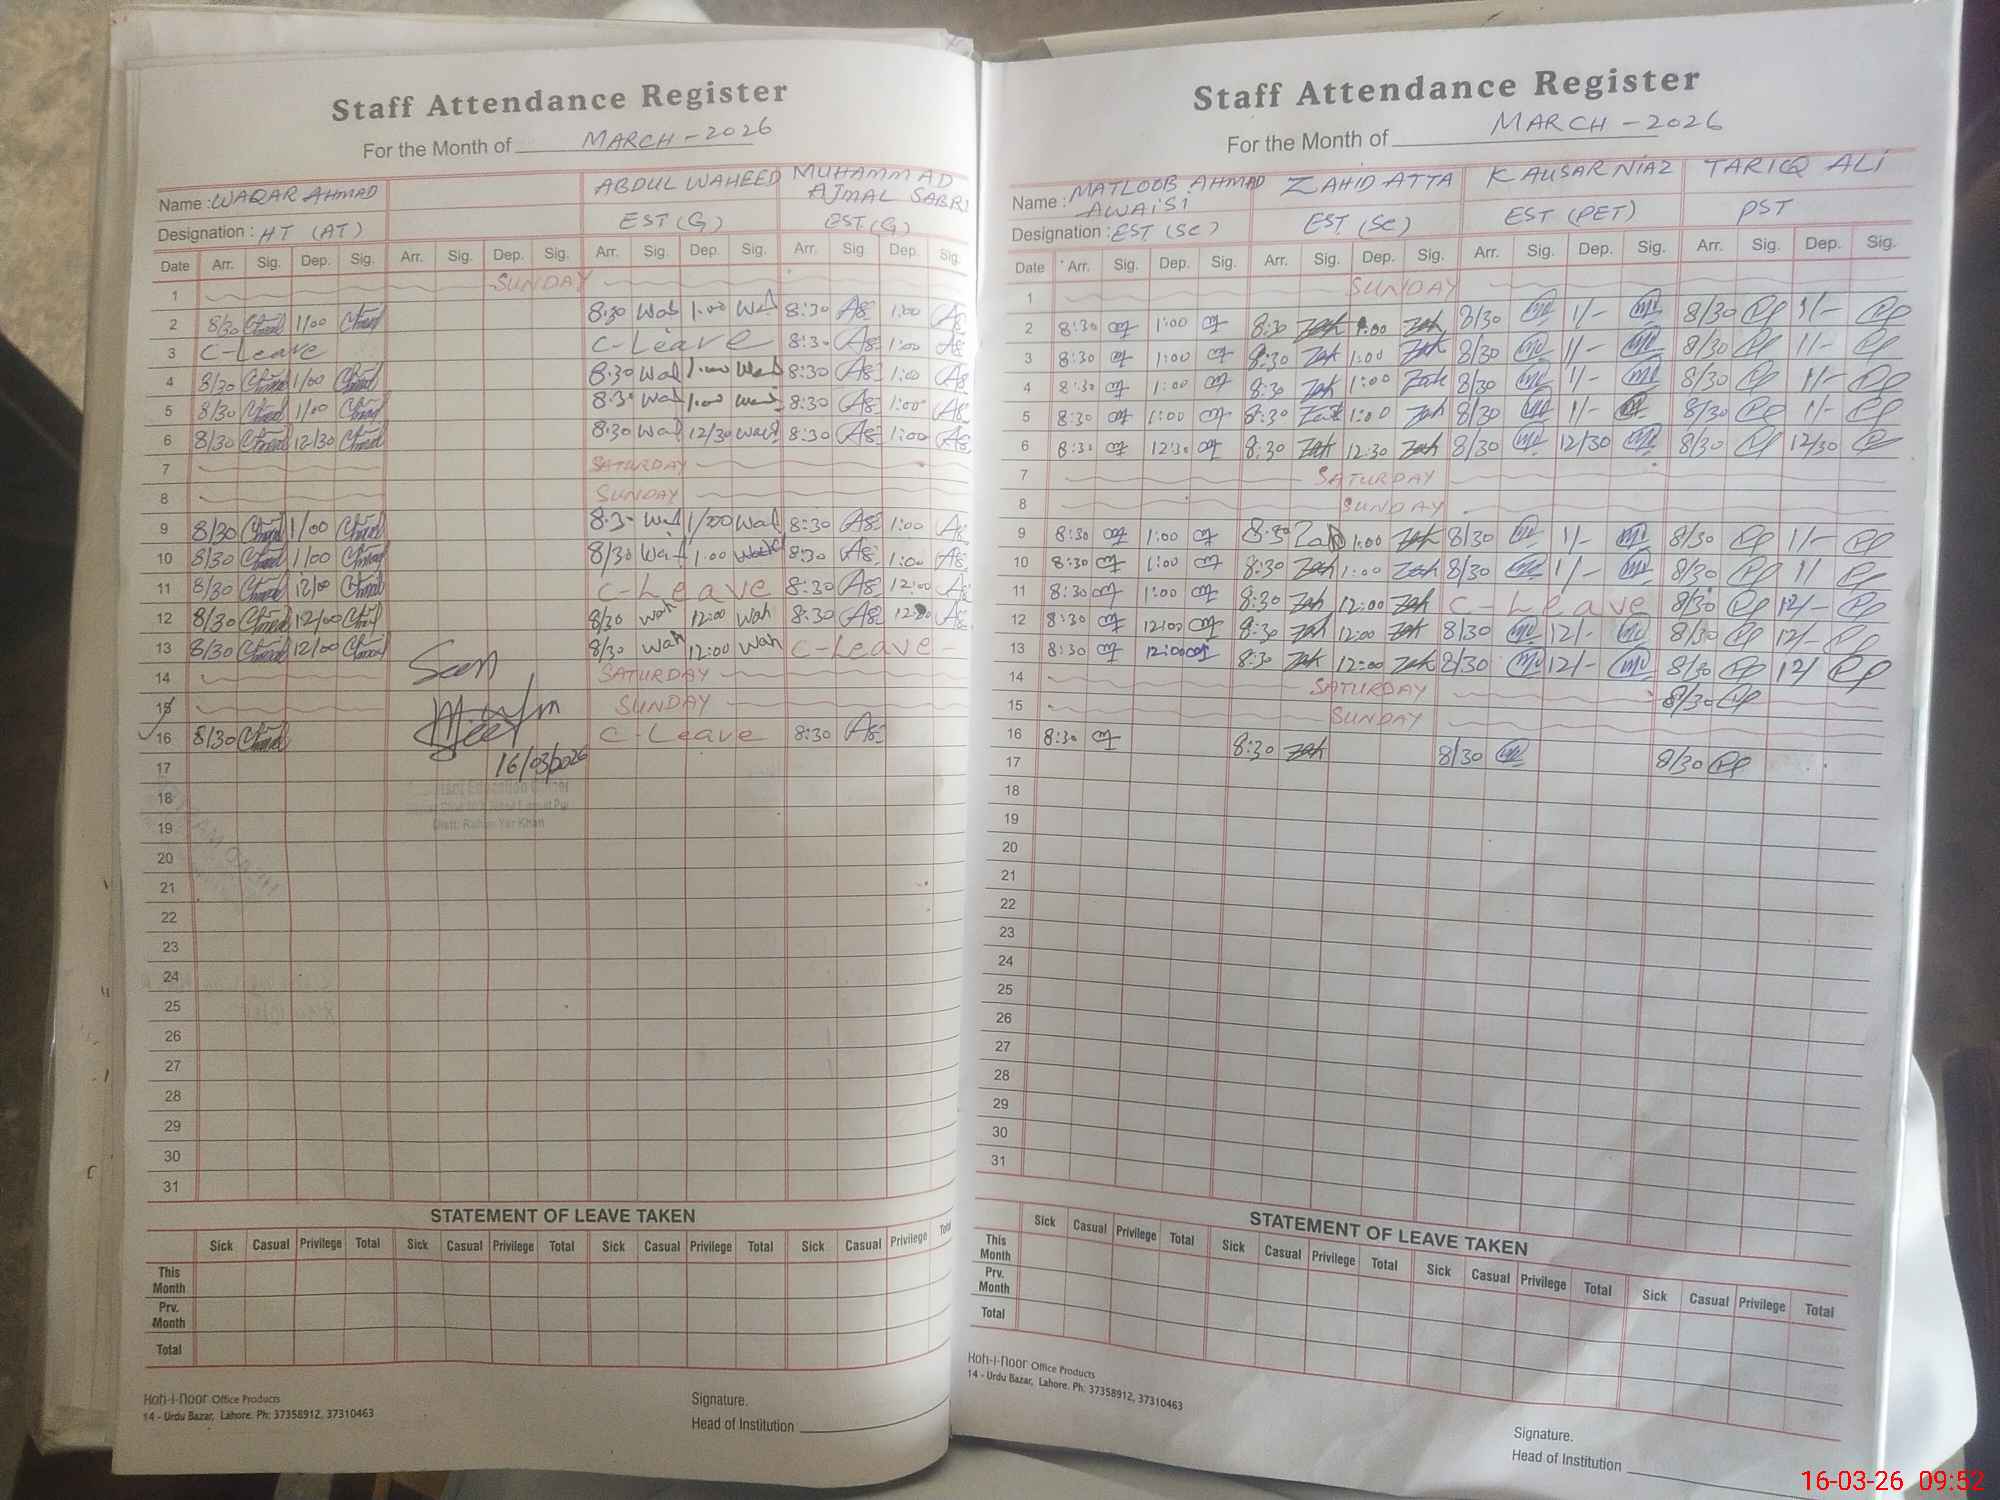 Staff Attendance Register
For the Month of MARCH - 2026
Name : WAQAR AHMAD ABDUL WAHEED MUHAMMAD AJMAL SABRI
Designation : HT (AT) EST (G) EST (G)
Date Arr. Sig. Dep. Sig. Arr. Sig. Dep. Sig. Arr. Sig. Dep. Sig. Arr. Sig. Dep. Sig.
1 SUNDAY
2 8/30 1/00 8:30 Wah 1:00 Wah 8:30 1:00
3 C-Leave C-Leave 8:30 1:00
4 8/30 1/00 8:30 Wah 1:00 Wah 8:30 1:00
5 8/30 1/00 8:30 Wah 1:00 Wah 8:30 1:00
6 8/30 12/30 8:30 Wah 12/30 Wah 8:30 1:00
7 SATURDAY
8 SUNDAY
9 8/30 1/00 8:30 Wah 1/00 Wah 8:30 1:00
10 8/30 1/00 8/30 Wah 1:00 Wah 8:30 1:00
11 8/30 12/00 C-Leave 8:30 12:00
12 8/30 12/00 8/30 Wah 12:00 Wah 8:30 12:00
13 8/30 12/00 8/30 Wah 12:00 Wah C-Leave
14 SATURDAY
15 SUNDAY
16 8/30 C-Leave 8:30
17 16/03/2026
18
19 Distt. Rahim Yar Khan
20
21
22
23
24
25
26
27
28
29
30
31
STATEMENT OF LEAVE TAKEN
Sick Casual Privilege Total Sick Casual Privilege Total Sick Casual Privilege Total Sick Casual Privilege Total
This Month
Prv. Month
Total
Koh-i-noor Office Products
14 - Urdu Bazar, Lahore. Ph: 37358912, 37310463
Signature.
Head of Institution
Staff Attendance Register
For the Month of MARCH - 2026
Name : MATLOOB AHMAD AWAISI ZAHID ATTA KAUSAR NIAZ TARIQ ALI
Designation : EST (SC) EST (SC) EST (PET) PST
Date Arr. Sig. Dep. Sig. Arr. Sig. Dep. Sig. Arr. Sig. Dep. Sig. Arr. Sig. Dep. Sig.
1 SUNDAY
2 8:30 1:00 8:30 Zah 1:00 Zah 8/30 1/- 8/30 1/-
3 8:30 1:00 8:30 Zah 1:00 Zah 8/30 1/- 8/30 1/-
4 8:30 1:00 8:30 Zah 1:00 Zah 8/30 1/- 8/30 1/-
5 8:30 1:00 8:30 Zah 1:00 Zah 8/30 1/- 8/30 1/-
6 8:30 12:30 8:30 Zah 12:30 Zah 8/30 12/30 8/30 12/30
7 SATURDAY
8 SUNDAY
9 8:30 1:00 8:30 Zah 1:00 Zah 8/30 1/- 8/30 1/-
10 8:30 1:00 8:30 Zah 1:00 Zah 8/30 1/- 8/30 1/
11 8:30 1:00 8:30 Zah 12:00 Zah C-Leave 8/30 12/-
12 8:30 12:00 8:30 Zah 12:00 Zah 8/30 12/- 8/30 12/-
13 8:30 12:00 8:30 Zah 12:00 Zah 8/30 12/- 8/30 12/
14 SATURDAY 8/30
15 SUNDAY
16 8:30 8:30 Zah 8/30 8/30
17
18
19
20
21
22
23
24
25
26
27
28
29
30
31
STATEMENT OF LEAVE TAKEN
Sick Casual Privilege Total Sick Casual Privilege Total Sick Casual Privilege Total Sick Casual Privilege Total
This Month
Prv. Month
Total
Koh-i-noor Office Products
14 - Urdu Bazar, Lahore. Ph: 37358912, 37310463
Signature.
Head of Institution
16-03-26 09:52